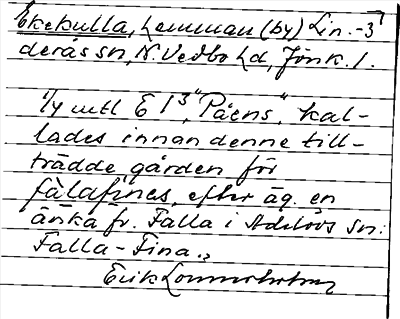 Ekekulla, Lemman (by) Lin.-3
deråssn, N. Vedbo hd, Jönk. l.
1/4 mtl E 1³ "Påens", kal-
lades innan denne till-
trädde gården för
fàlafines, efter äg. en
änka fr. Falla i Adelövs sn:
Falla-Fina.,